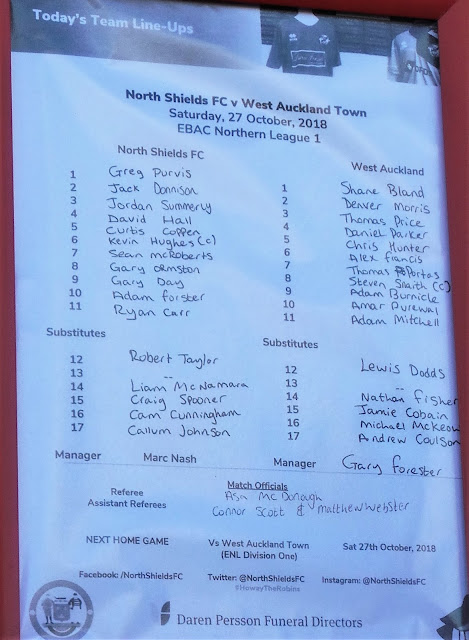 Today's Team Line-Ups
North Shields FC v West Auckland Town
Saturday, 27 October, 2018
EBAC Northern League 1
North Shields FC
1 Greg Purvis
2 Jack Donnison
3 Jordan Summerly
4 David Hall
5 Curtis Coppen
6 Kevin Hughes (c)
7 Sean McRoberts
8 Gary Ormston
9 Gary Day
10 Adam Forster
11 Ryan Carr
Substitutes
12 Robert Taylor
13 --
14 Liam McNamara
15 Craig Spooner
16 Cam Cunningham
17 Callum Johnson
Manager Marc Nash
West Auckland
1 Shane Bland
2 Denver Morris
3 Thomas Price
4 Daniel Parker
5 Chris Hunter
6 Alex Francis
7 Thomas Portas
8 Steven Snaith (c)
9 Adam Burnicle
10 Amar Purewal
11 Adam Mitchell
Substitutes
12 Lewis Dodds
13 --
14 Nathan Fisher
15 Jamie Cobain
16 Michael McKeow
17 Andrew Coulson
Manager Gary Forester
Match Officials
Referee McDonough
Assistant Referees Connor Scott & Matthew Webster
NEXT HOME GAME Vs West Auckland Town Sat 27th October, 2018
(ENL Division One)
Facebook: /NorthShieldsFC Twitter: @NorthShieldsFC Instagram: @NorthShieldsFC
#HowayTheRobins
Daren Persson Funeral Directors